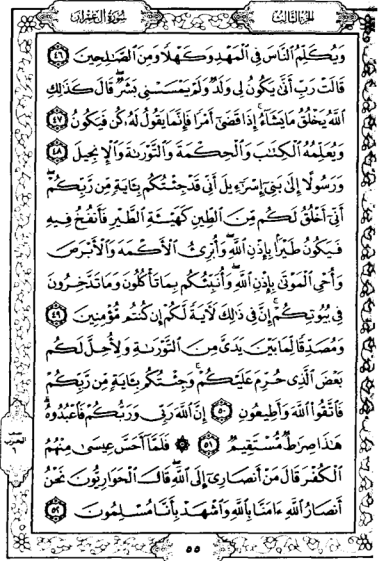 الجزء الثالث
سورة آل عمران
وَيُكَلِّمُ النَّاسَ فِي الْمَهْدِ وَكَهْلًا وَمِنَ الصَّالِحِينَ ٤٦
قَالَتْ رَبِّ أَنَّى يَكُونُ لِي وَلَدٌ وَلَمْ يَمْسَسْنِي بَشَرٌ قَالَ كَذَلِكِ
اللَّهُ يَخْلُقُ مَا يَشَاءُ إِذَا قَضَى أَمْرًا فَإِنَّمَا يَقُولُ لَهُ كُن فَيَكُونُ ٤٧
وَيُعَلِّمُهُ الْكِتَابَ وَالْحِكْمَةَ وَالتَّوْرَاةَ وَالْإِنجِيلَ ٤٨
وَرَسُولًا إِلَى بَنِي إِسْرَاءِيلَ أَنِّي قَدْ جِئْتُكُم بِآيَةٍ مِّن رَّبِّكُمْ
أَنِّي أَخْلُقُ لَكُم مِّنَ الطِّينِ كَهَيْئَةِ الطَّيْرِ فَأَنفُخُ فِيهِ
فَيَكُونُ طَيْرًا بِإِذْنِ اللَّهِ وَأُبْرِئُ الْأَكْمَهَ وَالْأَبْرَصَ
وَأُحْيِ الْمَوْتَى بِإِذْنِ اللَّهِ وَأُنَبِّئُكُم بِمَا تَأْكُلُونَ وَمَا تَدَّخِرُونَ
فِي بُيُوتِكُمْ إِنَّ فِي ذَلِكَ لَآيَةً لَّكُمْ إِن كُنتُم مُّؤْمِنِينَ ٤٩
وَمُصَدِّقًا لِّمَا بَيْنَ يَدَيَّ مِنَ التَّوْرَاةِ وَلِأُحِلَّ لَكُم
بَعْضَ الَّذِي حُرِّمَ عَلَيْكُمْ وَجِئْتُكُم بِآيَةٍ مِّن رَّبِّكُمْ
فَاتَّقُوا اللَّهَ وَأَطِيعُونِ ٥٠ إِنَّ اللَّهَ رَبِّي وَرَبُّكُمْ فَاعْبُدُوهُ
هَذَا صِرَاطٌ مُّسْتَقِيمٌ ٥١ ۞ فَلَمَّا أَحَسَّ عِيسَى مِنْهُمُ
الْكُفْرَ قَالَ مَنْ أَنصَارِي إِلَى اللَّهِ قَالَ الْحَوَارِيُّونَ نَحْنُ
أَنصَارُ اللَّهِ ءَامَنَّا بِاللَّهِ وَاشْهَدْ بِأَنَّا مُسْلِمُونَ ٥٢
الحزب
٦
٥٥